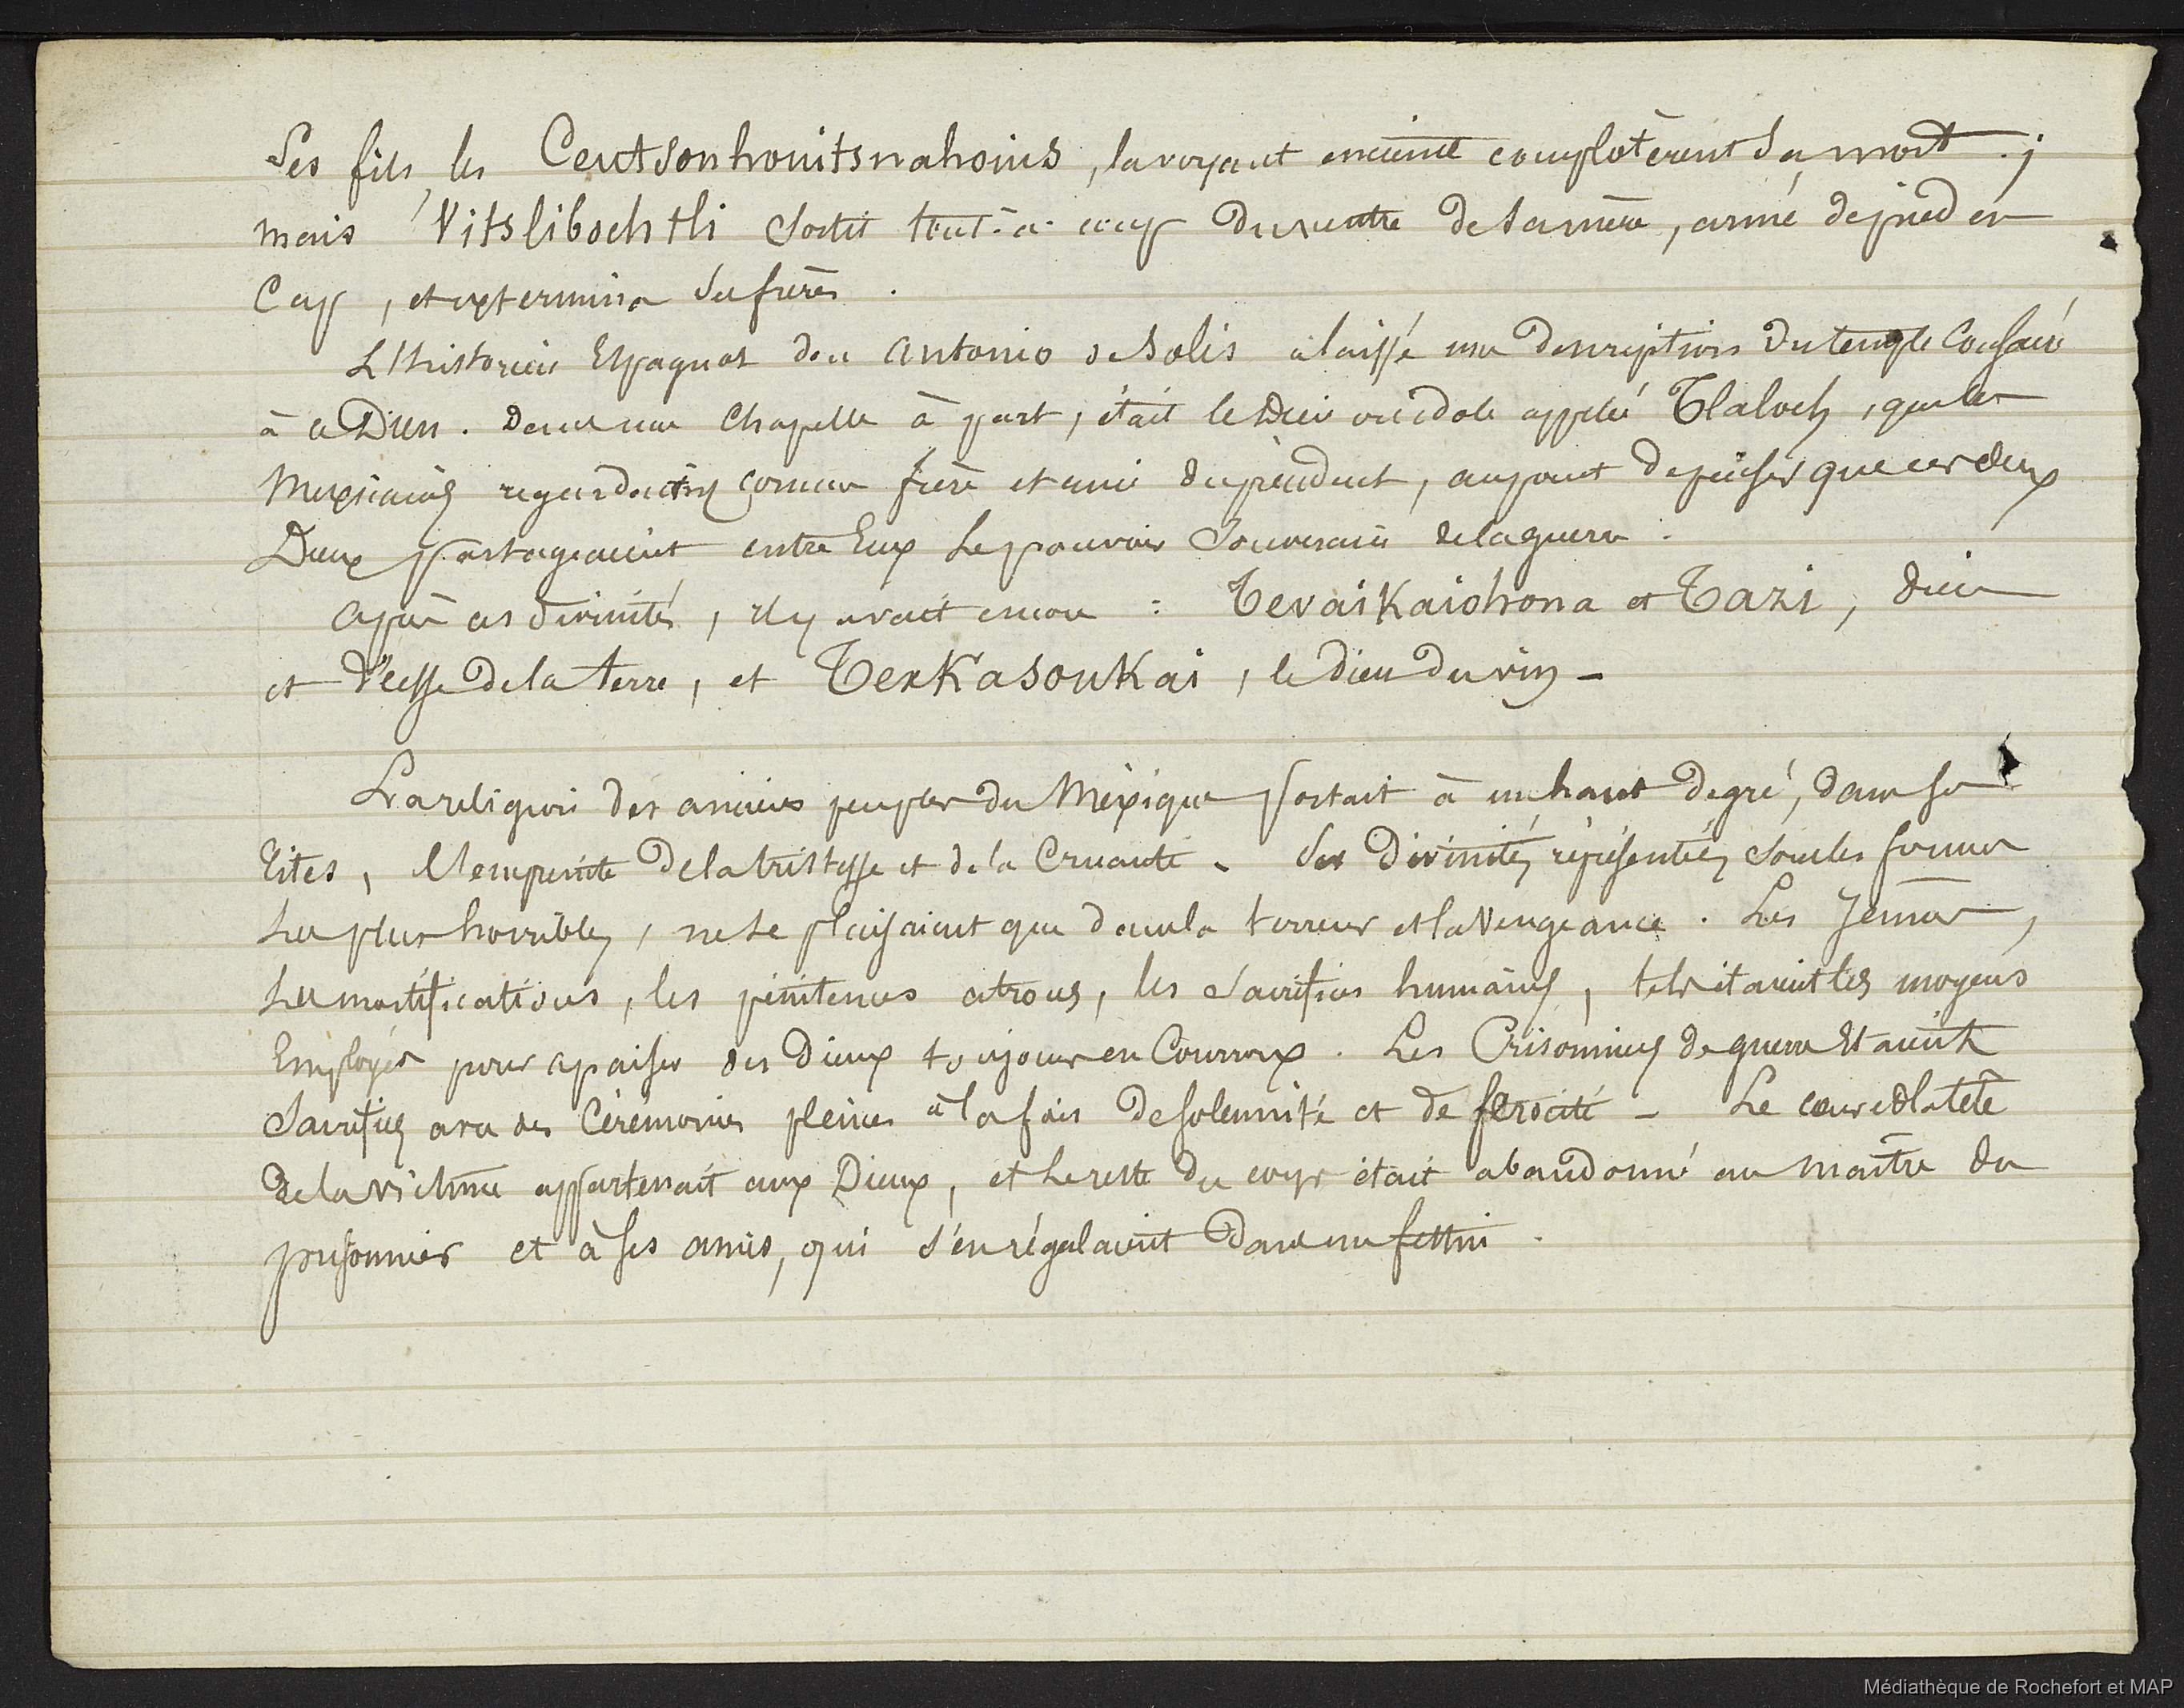 Ses fils, les Centsonhouitsnahoius, la voyant enceinte complotèrent sa mort ;
mais Vitslibochtli sortit tout-à-coup du ventre de sa mère, armé de pied en
Cap, et extermina ses frères.
L'historien Espagnol don Antonio de Solis a laissé une description du temple Consacré
à ce Dieu. Dans une Chapelle à part, était le Dieu ou idole appelé Tlaloch, que les
Mexicains regardaient comme frère et ami du précédent, au point de penser que ces deux
Dieux partageaient entre Eux le pouvoir Souverain de la guerre.
Après ces divinités, il y avait encore : Tevaikaiohona et Tazi, dieu
et Déesse de la terre, et Texkasoukai, le dieu du vin -
La religion des anciens peuples du Mexique portait à un haut degré, dans ses
rites, l'empreinte de la tristesse et de la Cruauté - Ses Divinités, réprésentées sous les formes
les plus horribles, ne se plaisaient que dans la terreur et la Vengeance. Les Jeûnes,
les mortifications, les pénitences atroces, les sacrifices humains, tels étaient les moyens
Employés pour apaiser des Dieux toujours en Courroux. Les Prisonniers de guerre étaient
Sacrifiés avec des Cérémonies pleines à la fois de solennité et de férocité - Le cœur et la tête
de la victime appartenait aux Dieux, et le reste du corps était abandonné au maître du
prisonnier et à ses amis, qui s'en régalaient dans un festin.
Médiathèque de Rochefort et MAP